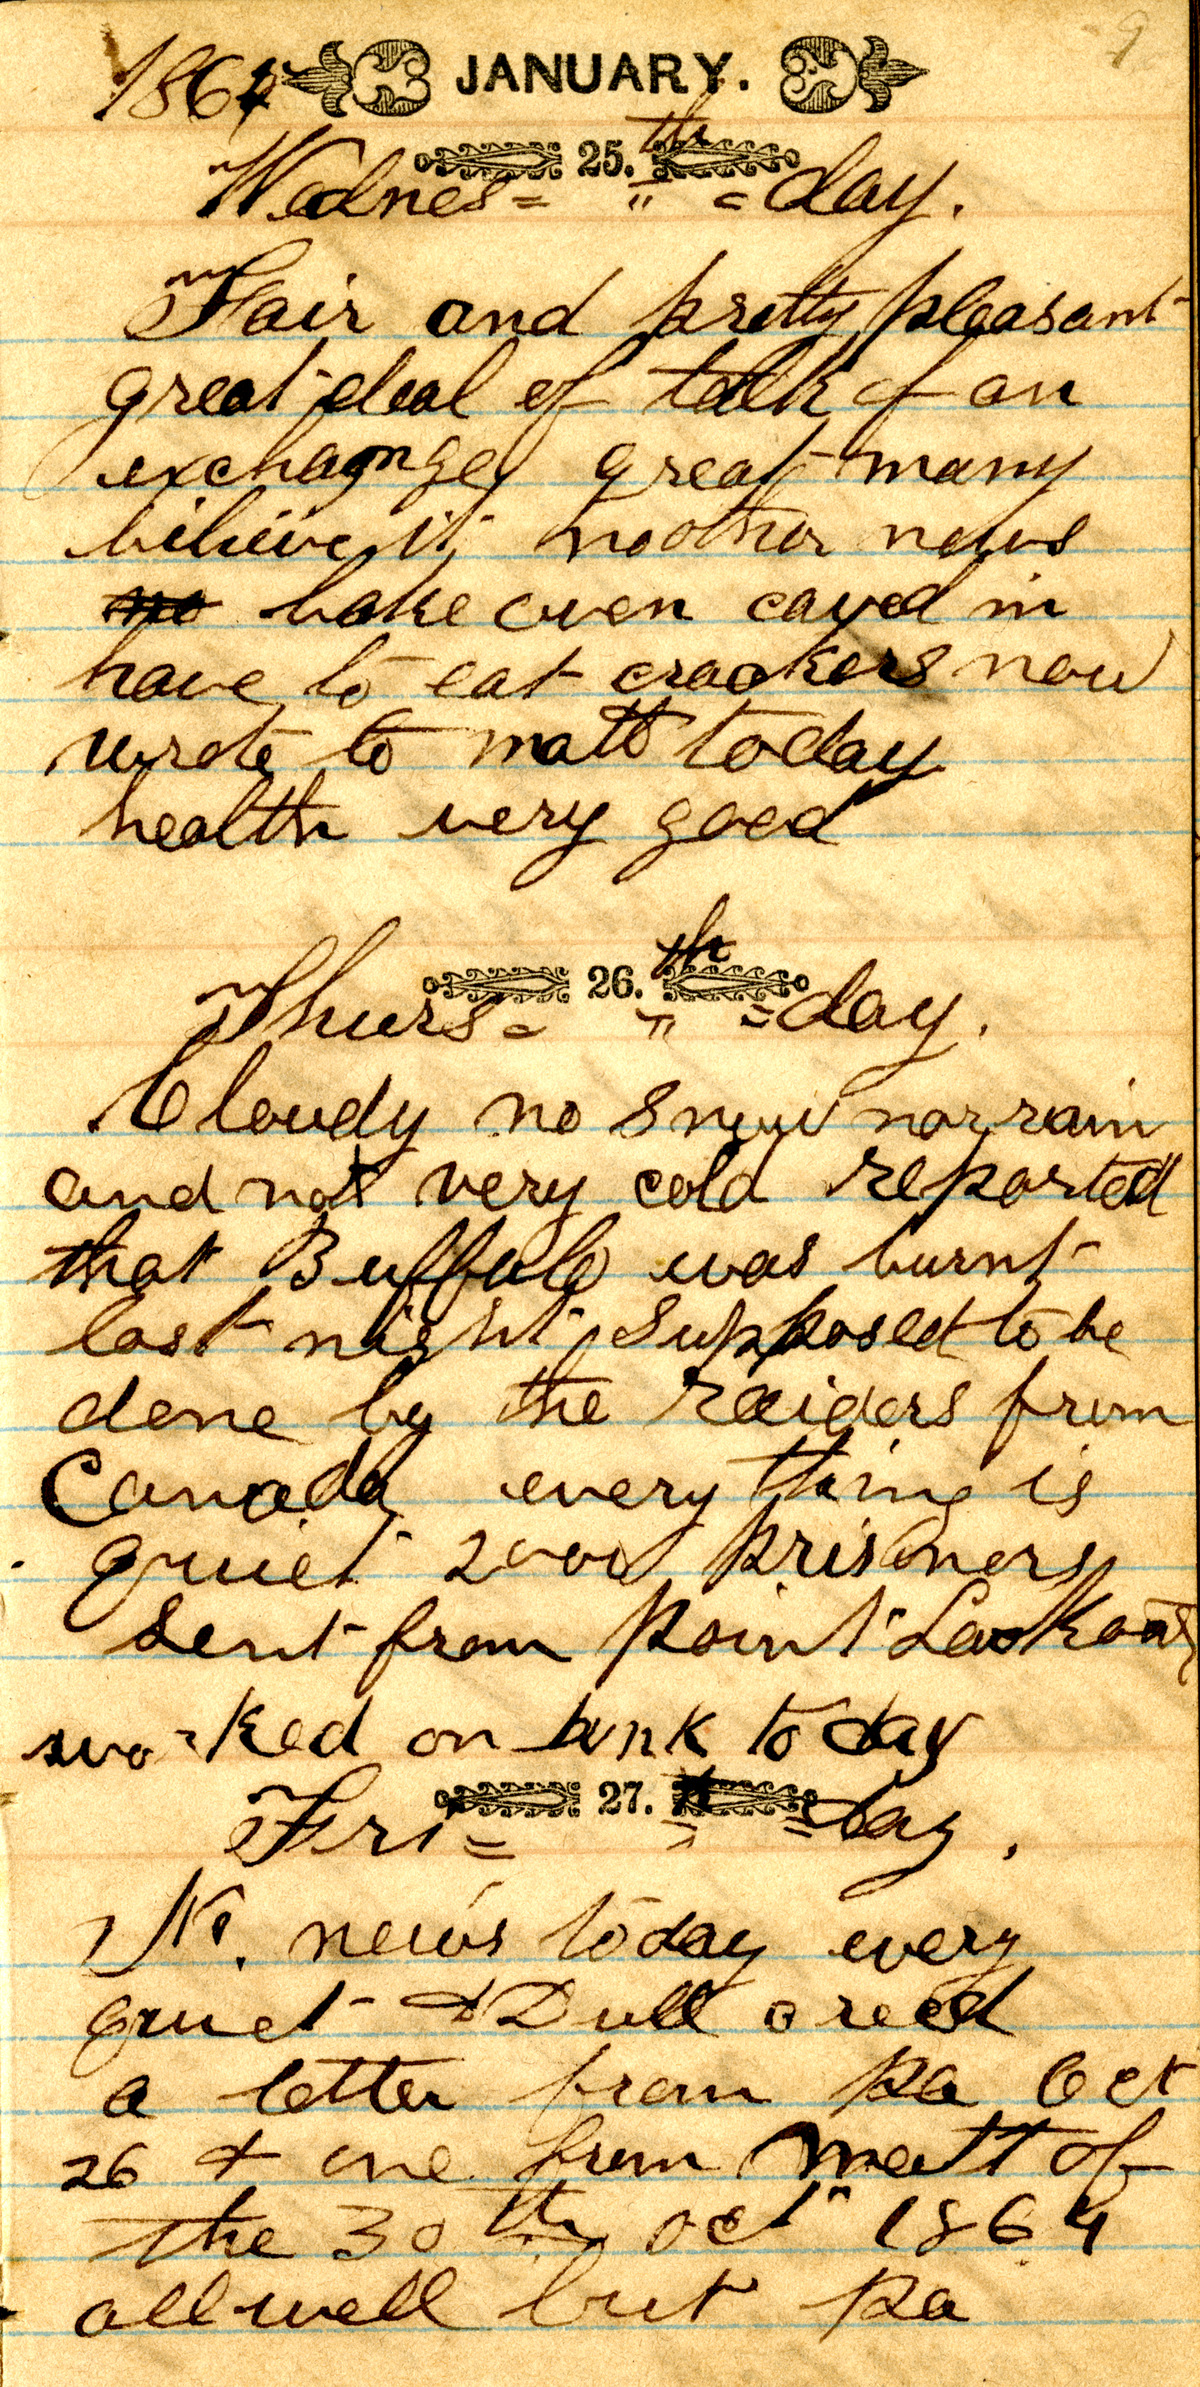 9
1864 JANUARY.
25.th
Wednes= " =day.
Fair and pretty pleasant
great deal of talk of an
exchange great many
believe it no other news
no bake oven caved in
have to eat crackers now
wrote to matt today
health very good
26.th
Thurs= " =day.
Cloudy no snow nor rain
and not very cold reported
that Buffalo was burnt
last night Supposed to be
done by the Raiders from
Canada every thing is
quiet 2000 prisoners
sent from point Lookout
worked on bunk today
27.
Fri= " =day.
No. news today very
quiet & Dull recd
a letter from pa Oct
26 & one from Matt of
the 30th Oct" 1864
all well but pa